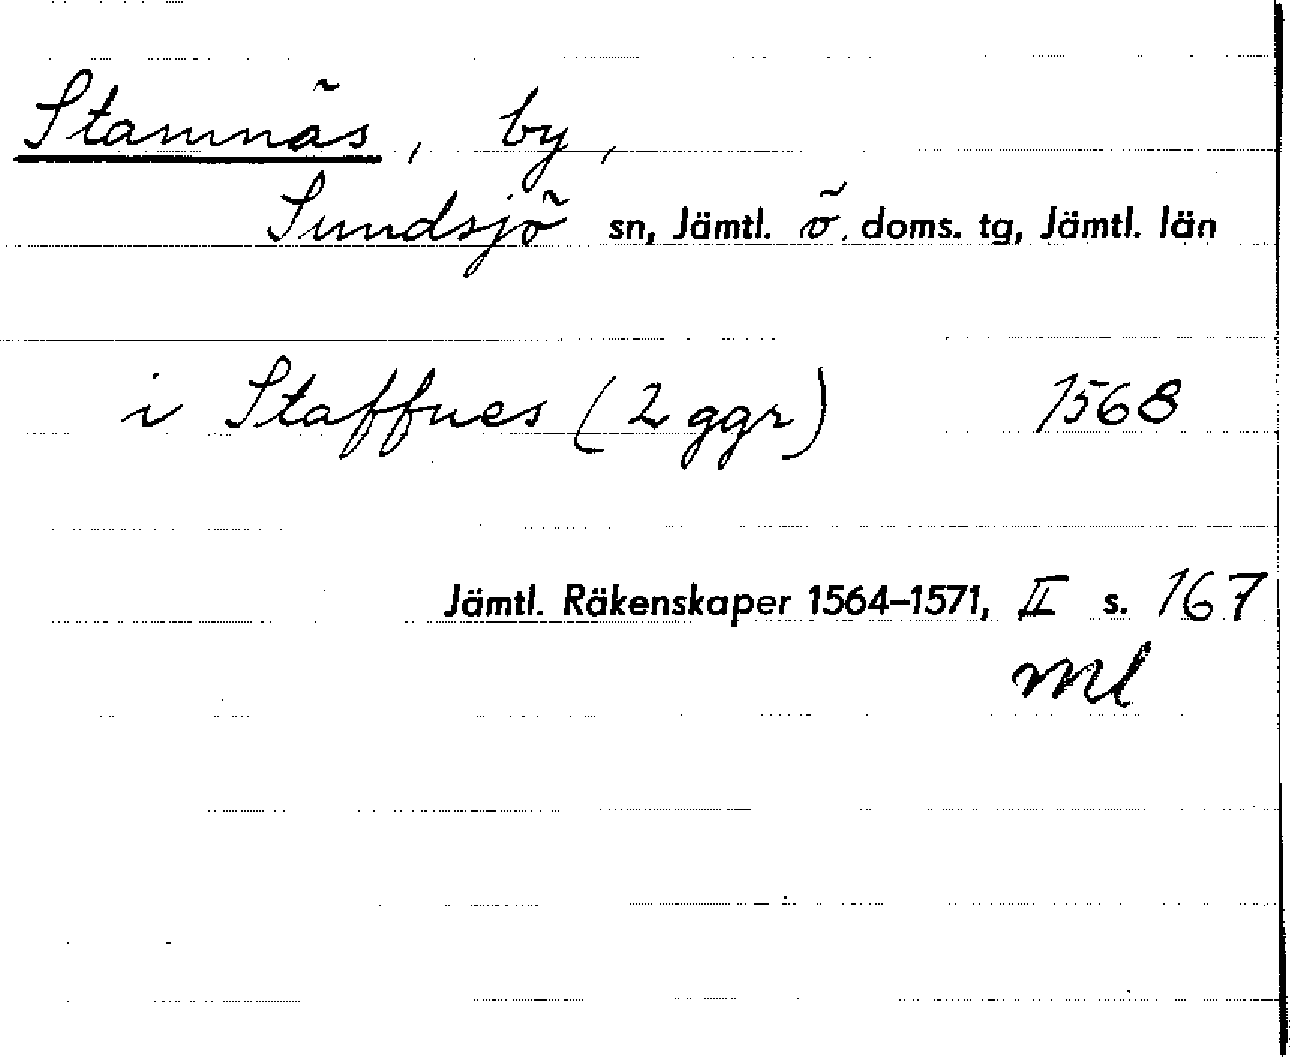 Stamnäs, by,
Sundsjö sn, Jämtl. ö. doms. tg, Jämtl. län
i Staffnes (2 ggr) 1568
Jämtl. Räkenskaper 1564–1571, II s. 167
Ml